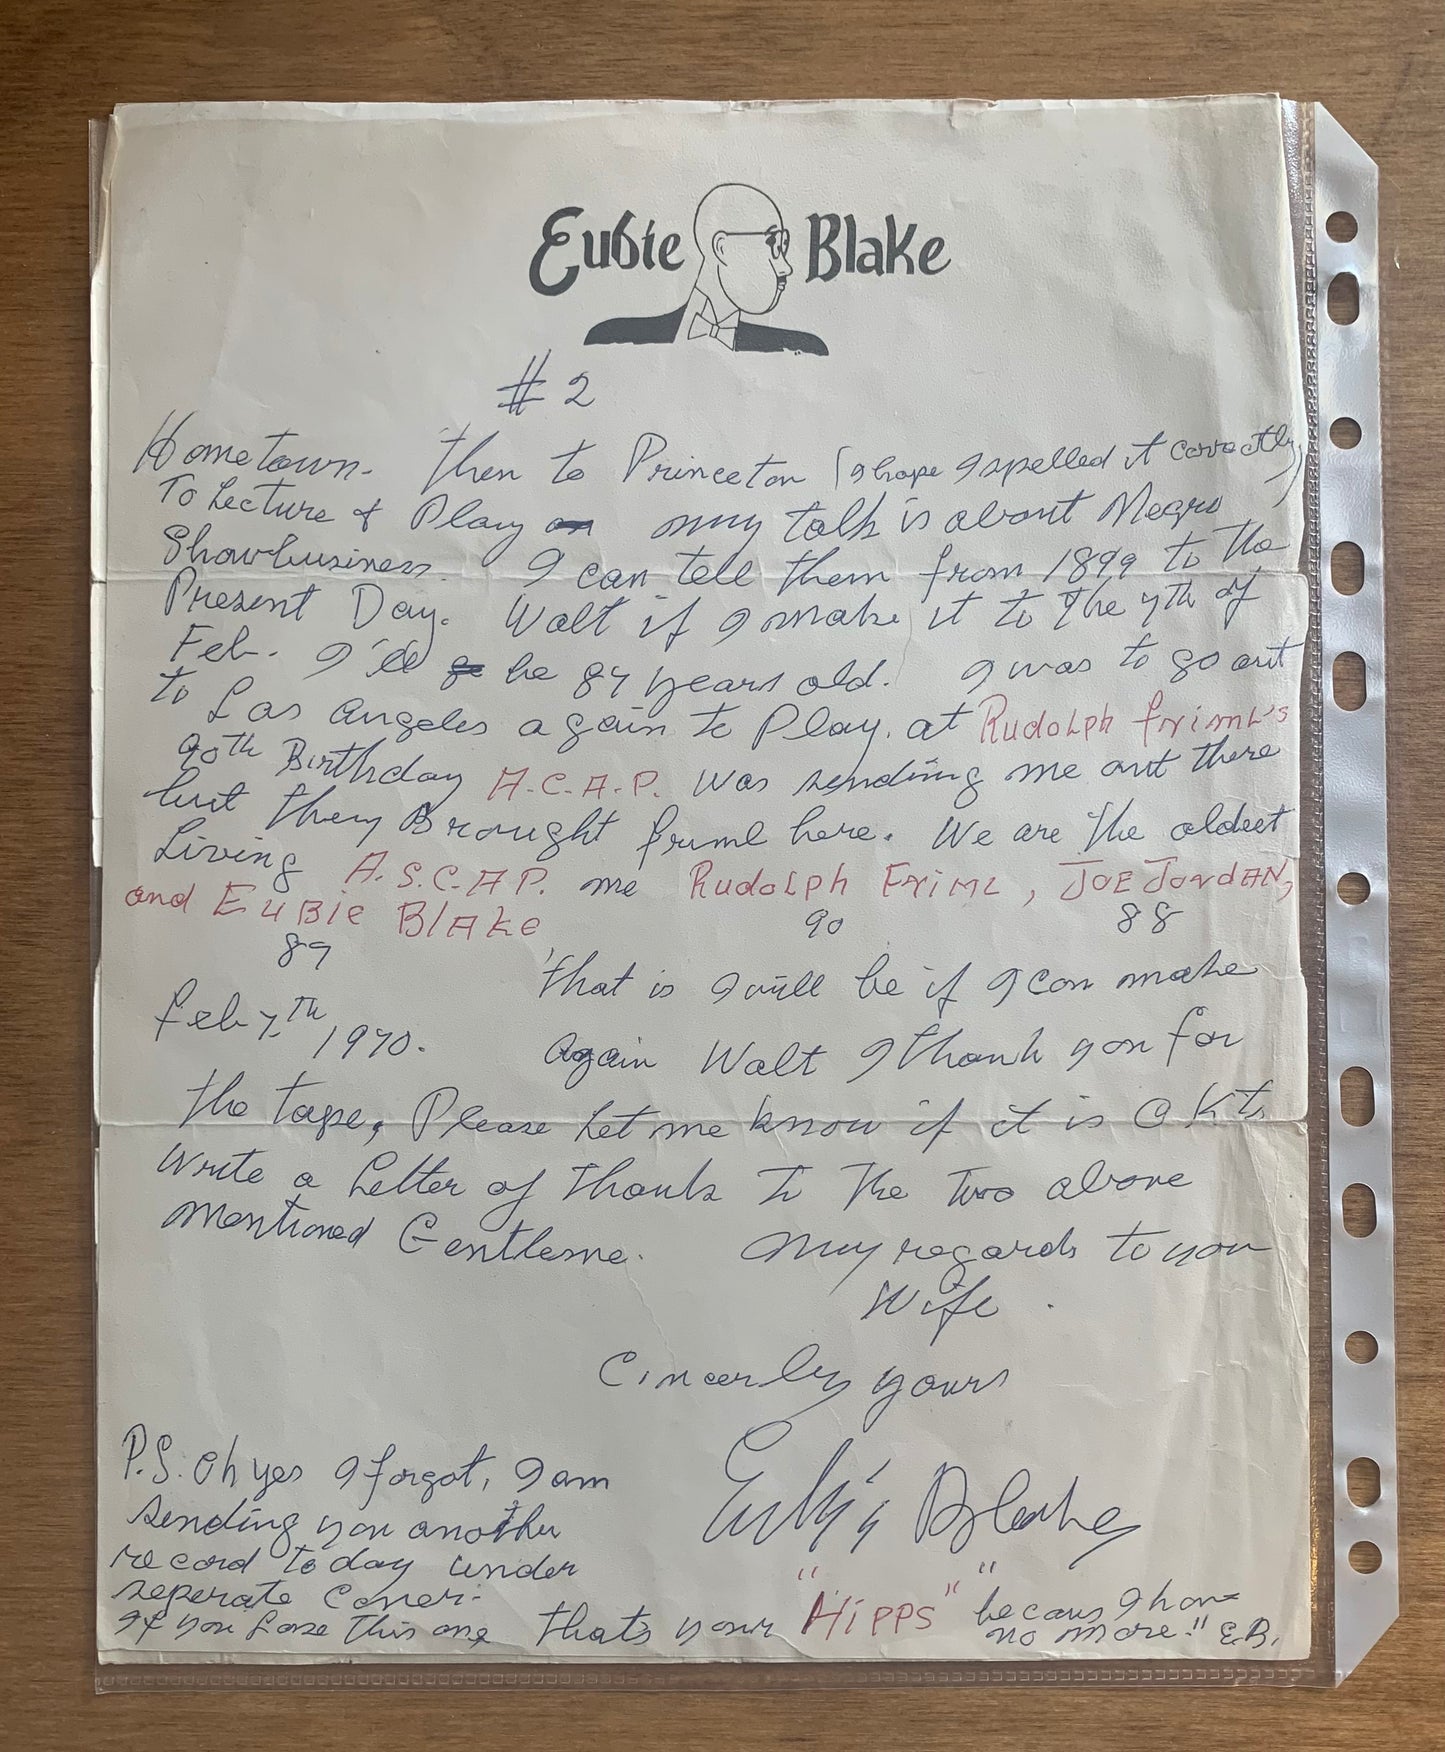 Eubie Blake
# 2
Hometown. Then to Princeton (I hope I spelled it correctly)
To Lecture & Play my talk is about Negro
Showbusiness. I can tell them from 1899 to the
Present Day. Walt if I make it to the 7th of
Feb. I'll be 87 years old. I was to go out
to Los Angeles again to Play. at Rudolph Friml's
90th Birthday A.C.A.P. was sending me out there
but they Brought friml here. We are the oldest
Living A.S.C.A.P. me Rudolph Friml, Joe Jordan,
and Eubie Blake 90 88
89
That is I will be if I can make
Feb 7.th 1970. Again Walt I thank you for
the tape. Please Let me know if it is O K to
Write a Letter of thanks to The Two above
mentioned Gentleme. My regards to you
Wife.
Cincerly yours
Eubie Blake
P.S. Oh yes I forgot, I am
sending you another
record today under
seperate Cover.
If you Lose This one that's your "Hipps" becaus I have
no more!! E.B.